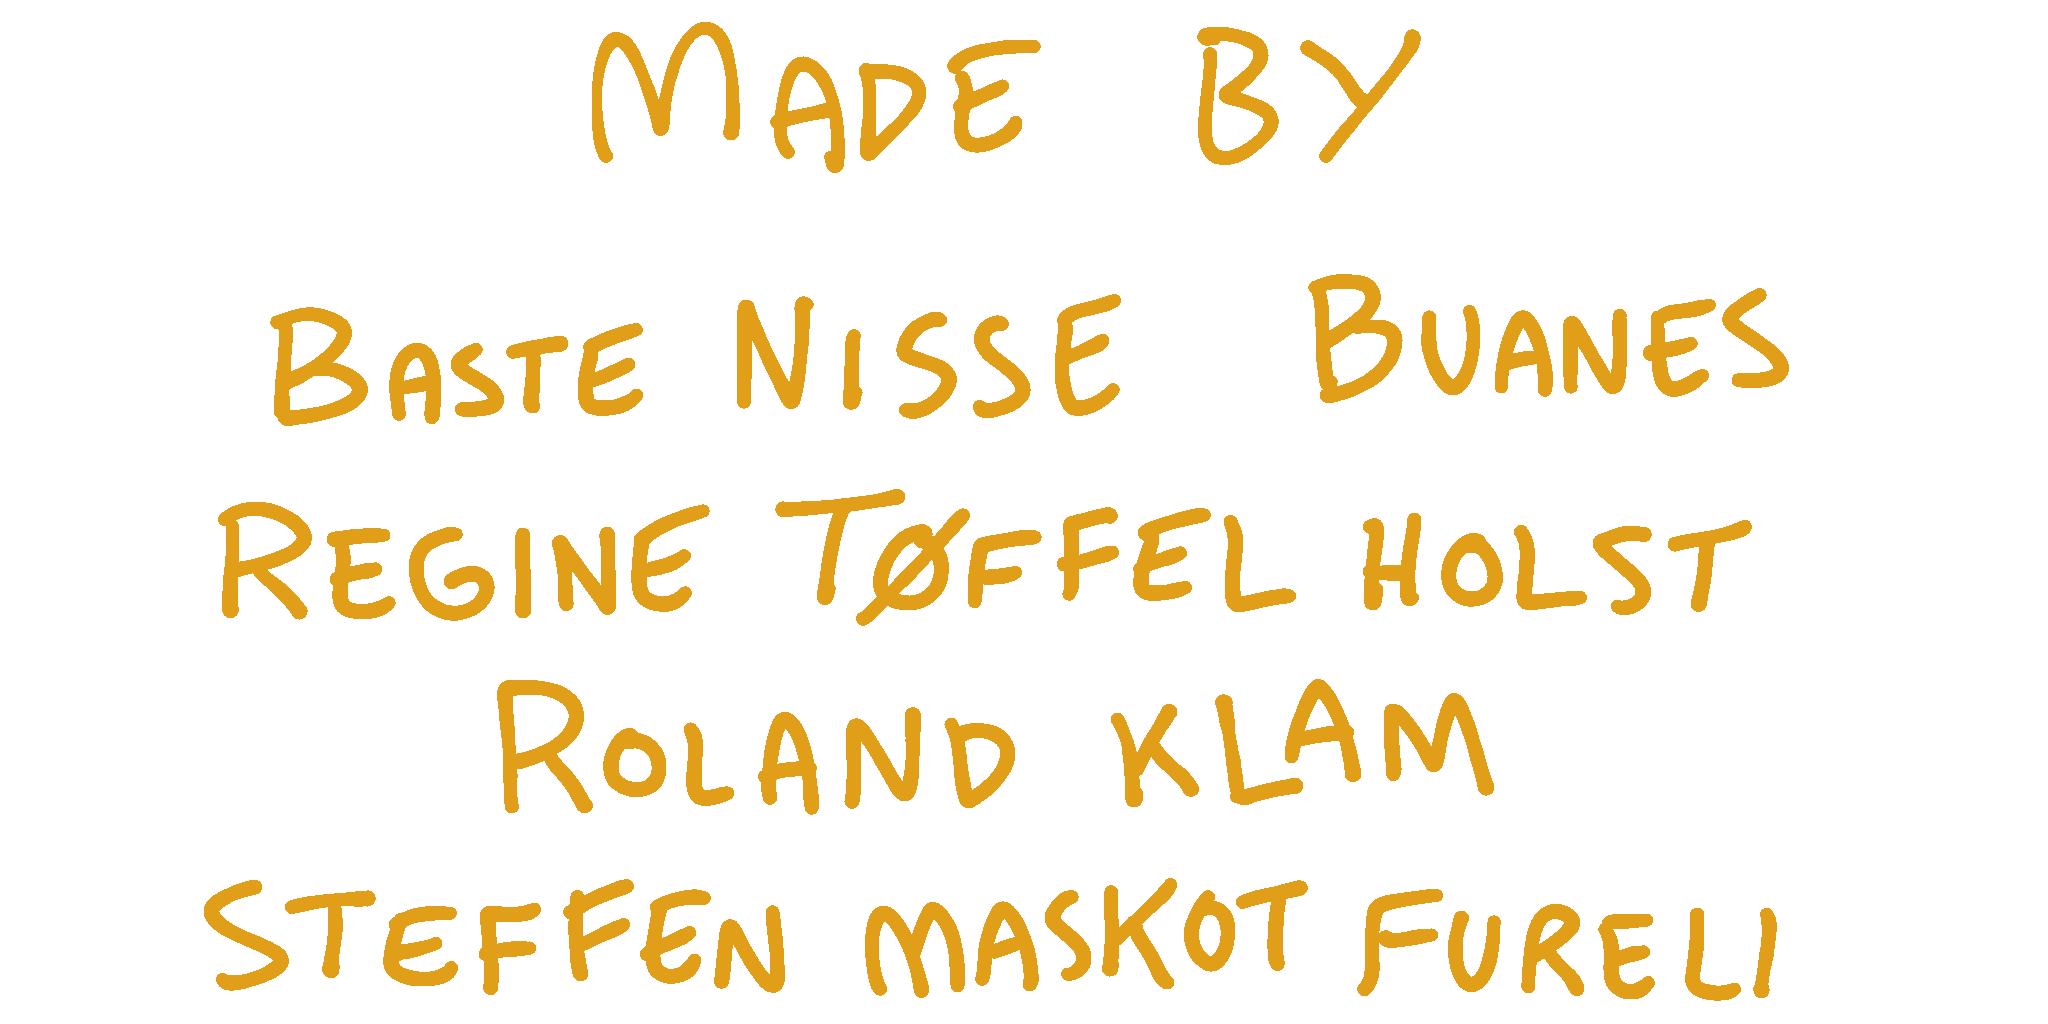 MADE BY
BASTE NISSE BUANES
REGINE TØFFEL HOLST
ROLAND KLAM
STEFFEN MASKOT FURELI